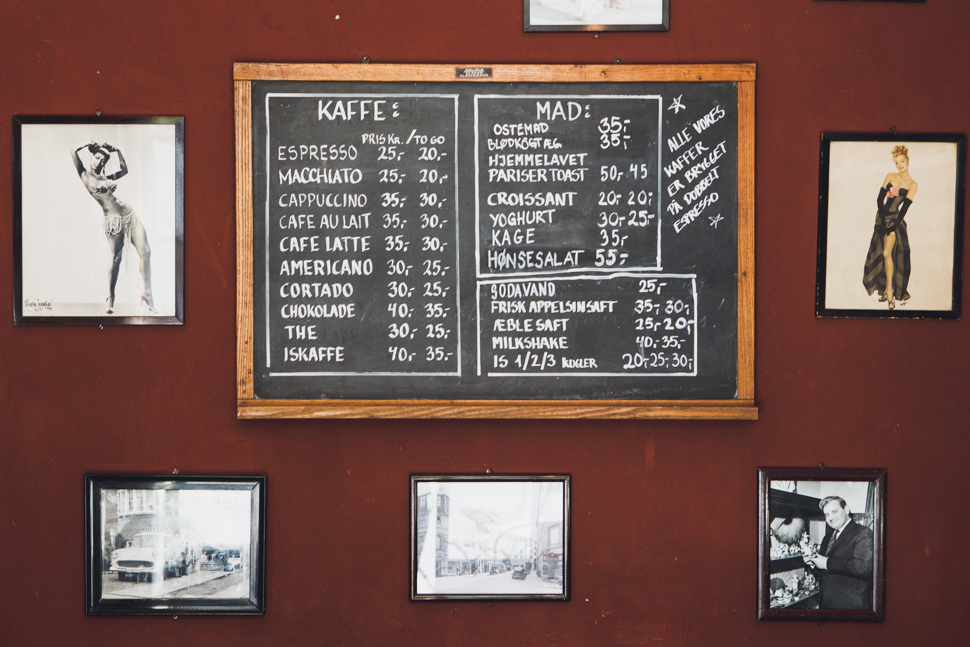 KAFFE:
PRIS KR. / TO GO
ESPRESSO 25,- 20,-
MACCHIATO 25,- 20,-
CAPPUCCINO 35,- 30,-
CAFE AU LAIT 35,- 30,-
CAFE LATTE 35,- 30,-
AMERICANO 30,- 25,-
CORTADO 30,- 25,-
CHOKOLADE 40,- 35,-
THE 30,- 25,-
ISKAFFE 40,- 35,-
MAD:
OSTEMAD 35,-
BLØDKOGT ÆG 35,-
HJEMMELAVET
PARISERTOAST 50,- 45
CROISSANT 20,- 20,-
YOGHURT 30,- 25,-
KAGE 35,-
HØNSESALAT 55,-
SODAVAND 25,-
FRISK APPELSINSAFT 35,- 30,-
ÆBLESAFT 25,- 20,-
MILKSHAKE 40,- 35,-
IS 1/2/3 KUGLER 20,- 25,- 30,-
ALLE VORES
KAFFER
ER BRYGGET
PÅ DOBBELT
ESPRESSO